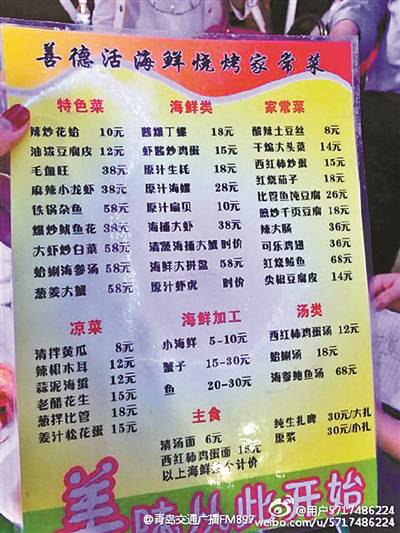 善德活海鲜烧烤家常菜
特色菜
辣炒花蛤 10元
油泼豆腐皮 12元
毛血旺 38元
麻辣小龙虾 38元
铁锅杂鱼 58元
爆炒鱿鱼花 38元
大虾炒白菜 58元
蛤蜊海参汤 58元
葱姜大蟹 58元
海鲜类
酱爆丁螺 18元
虾酱炒鸡蛋 15元
原汁生蚝 18元
原汁海螺 28元
原汁扇贝 10元
海捕大虾 38元
清蒸海捕大蟹 时价
海鲜大拼盘 58元
原汁虾虎 时价
家常菜
酸辣土豆丝 8元
干煸大头菜 14元
西红柿炒蛋 15元
红烧茄子 18元
比管鱼炖豆腐 26元
煎炒千页豆腐 18元
辣大肠 36元
可乐鸡翅 36元
红烧鲅鱼 68元
尖椒豆腐皮 14元
凉菜
清拌黄瓜 8元
辣根木耳 12元
蒜泥海蜇 12元
老醋花生 15元
葱拌比管 18元
姜汁松花蛋 15元
海鲜加工
小海鲜 5-10元
蟹子 15-30元
鱼 20-30元
汤类
西红柿鸡蛋汤 12元
蛤蜊汤 18元
海参鲍鱼汤 68元
主食
清汤面 6元
西红柿鸡蛋面 15元
以上海鲜按个计价
纯生扎啤 30元/大扎
原浆 30元/小扎
美味从此开始
@青岛交通广播FM897
@用户5717486224
weibo.com/u/5717486224